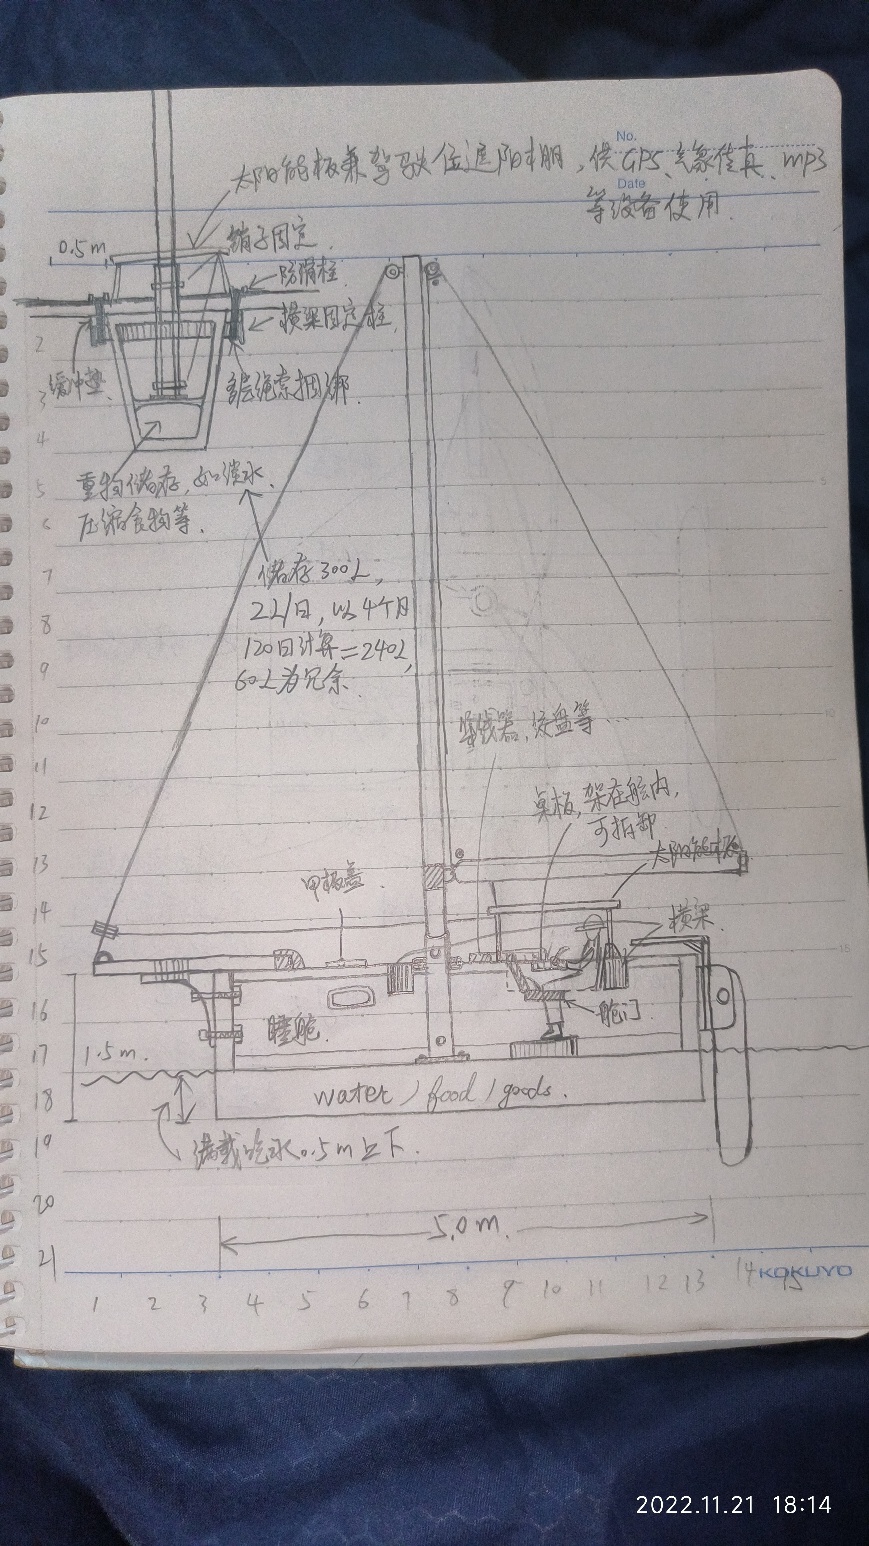 No.
太阳能板兼驾驶位遮阳棚，供GPS、气象传真、mp3
Date
等设备使用.
0.5m
销子固定.
防滑柱.
横梁固定柱.
缓冲垫.
多层绳索捆绑.
重物储存,如淡水、
压缩食物等.
储存300L,
2L/日,以4个月
120日计算=240L,
60L为冗余.
紧线器,绞盘等...
桌板,架在舱内,
可拆卸.
太阳能板
甲板盖.
横梁.
睡舱.
舱门
1.5m.
water / food / goods.
满载吃水0.5m上下.
5.0m.
2
3
4
5
6
7
8
9
10
11
12
13
14
15
16
17
18
19
20
21
1 2 3 4 5 6 7 8 9 10 11 12 13 14 15
KOKUYO
2022.11.21 18:14